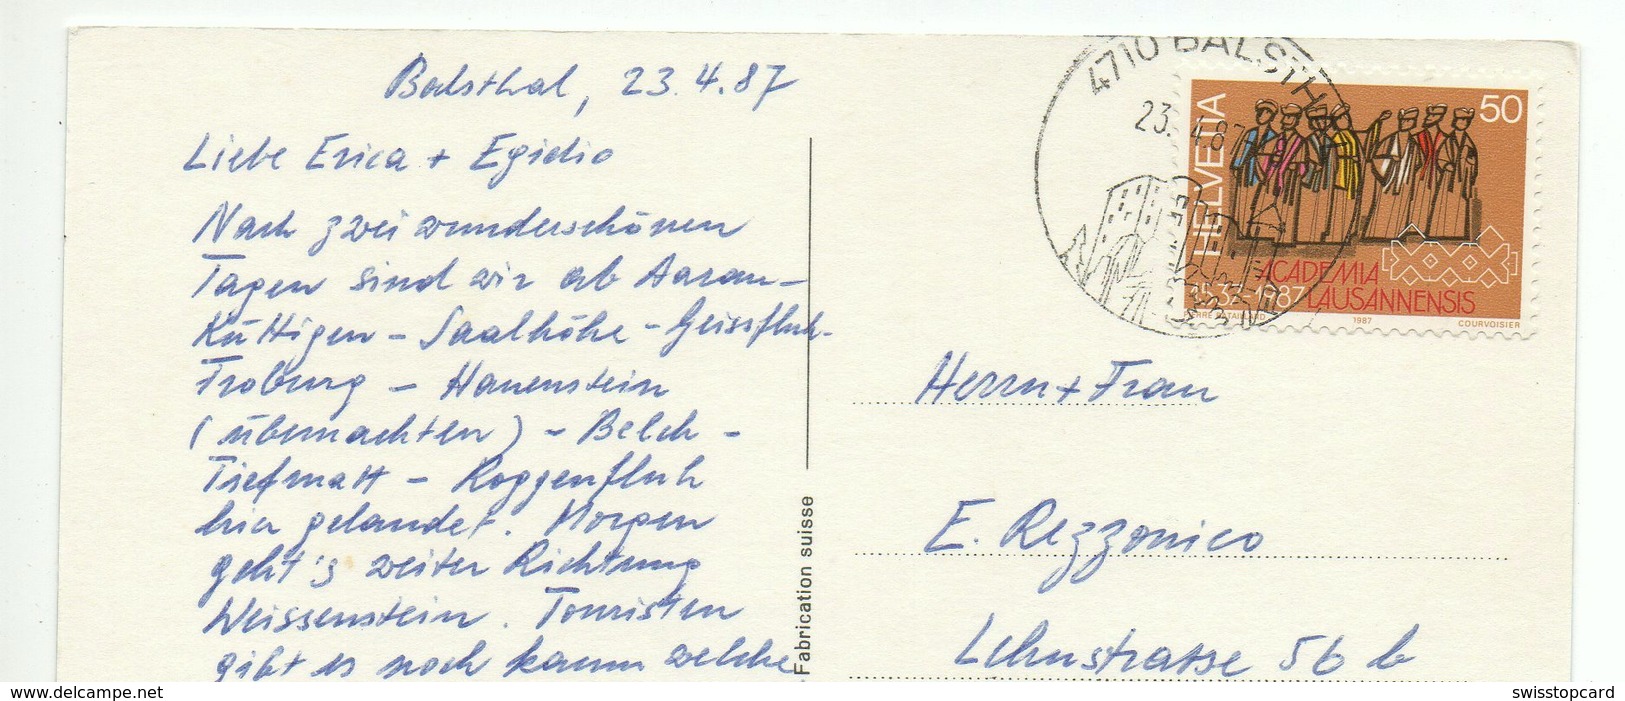 Balsthal, 23.4.87
Liebe Erica + Egidio
Nach zwei wunderschönen
Tagen sind wir ab Aarau –
Küttigen – Saalhöhe – Geissfluh –
Froburg – Hauenstein
(übernachten) – Belch –
Tiefmatt – Roggenfluh
hier gelandet. Morgen
geht's weiter Richtung
Weissenstein. Touristen
gibt es noch kaum welche
Fabrication suisse
4710 BALSTH
23. 4.87
HELVETIA
50
ACADEMIA
LAUSANNENSIS
1537-1987
1987
COURVOISIER
Herrn + Frau
E. Rezzonico
Lehnstrasse 56 b
www.delcampe.net
swisstopcard